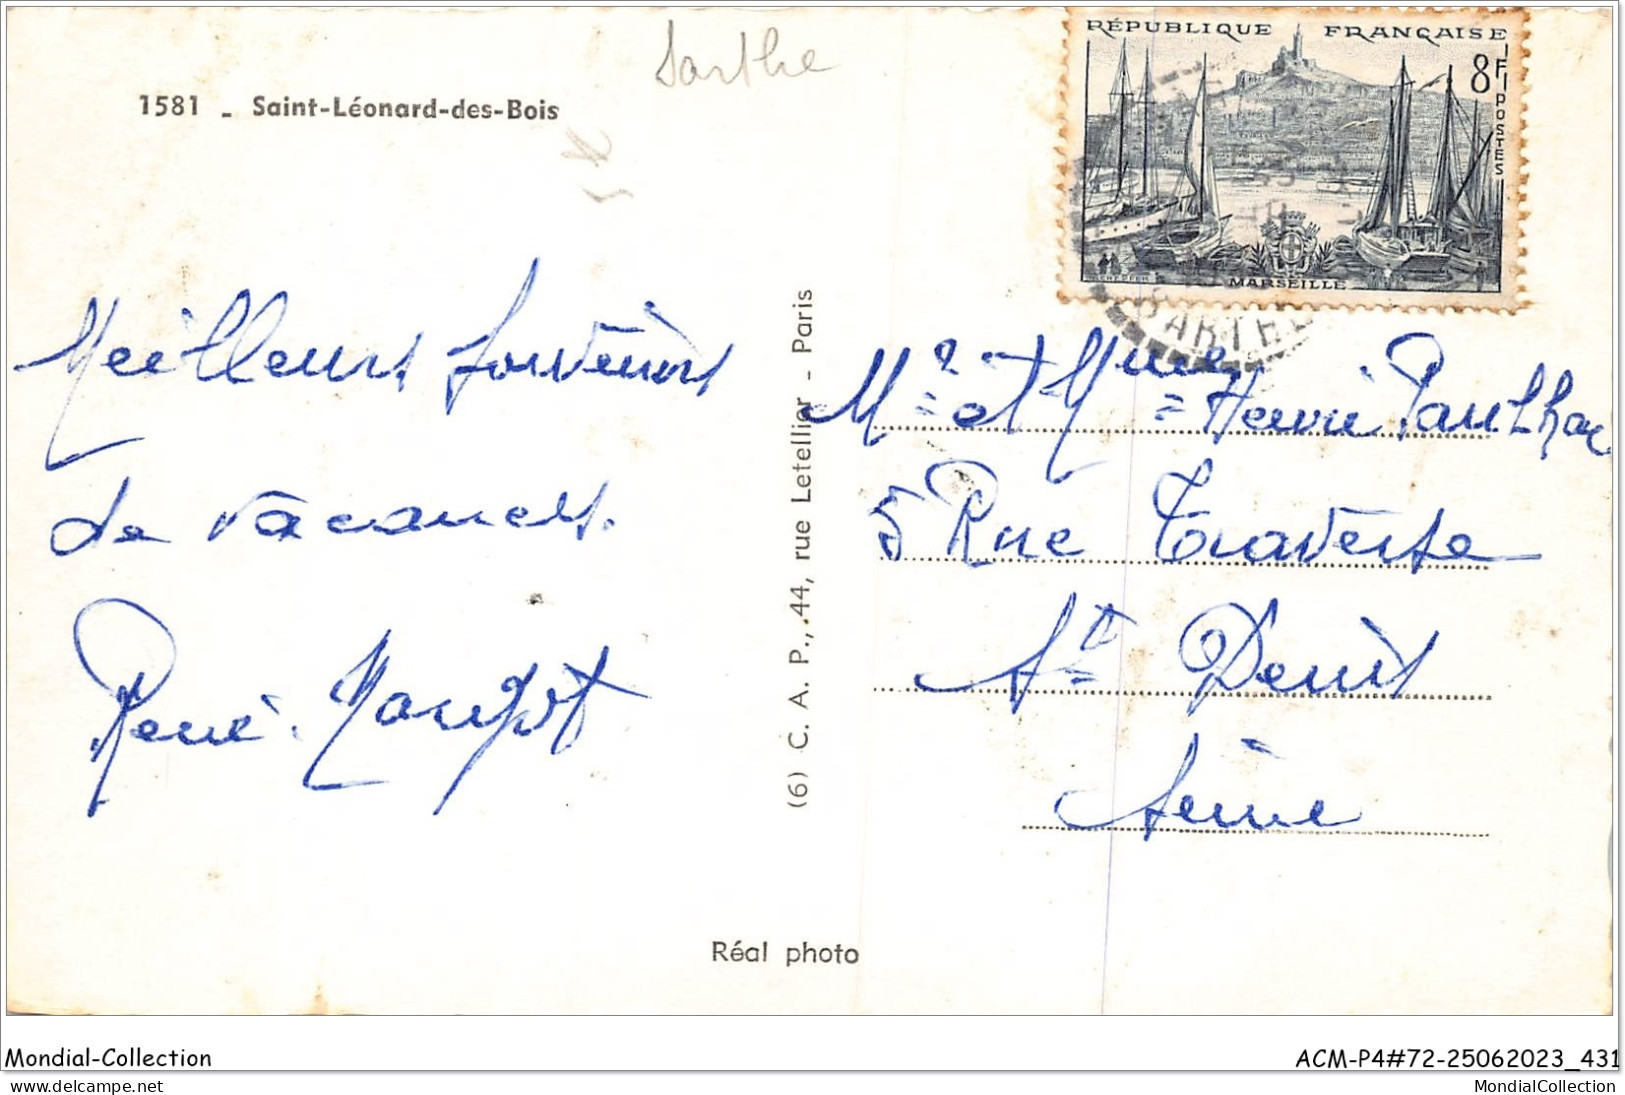 Sarthe
1581 - Saint-Léonard-des-Bois
RÉPUBLIQUE FRANÇAISE
8F
POSTES
MARSEILLE
SARTHE
Meilleurs souvenirs
de vacances.
René.
(6) C. A. P., 44, rue Letellier - Paris
Mr et Mme Henri
5 Rue Traverse
St Denis
Seine
Réal photo
Mondial-Collection
ACM-P4#72-25062023_431
MondialCollection